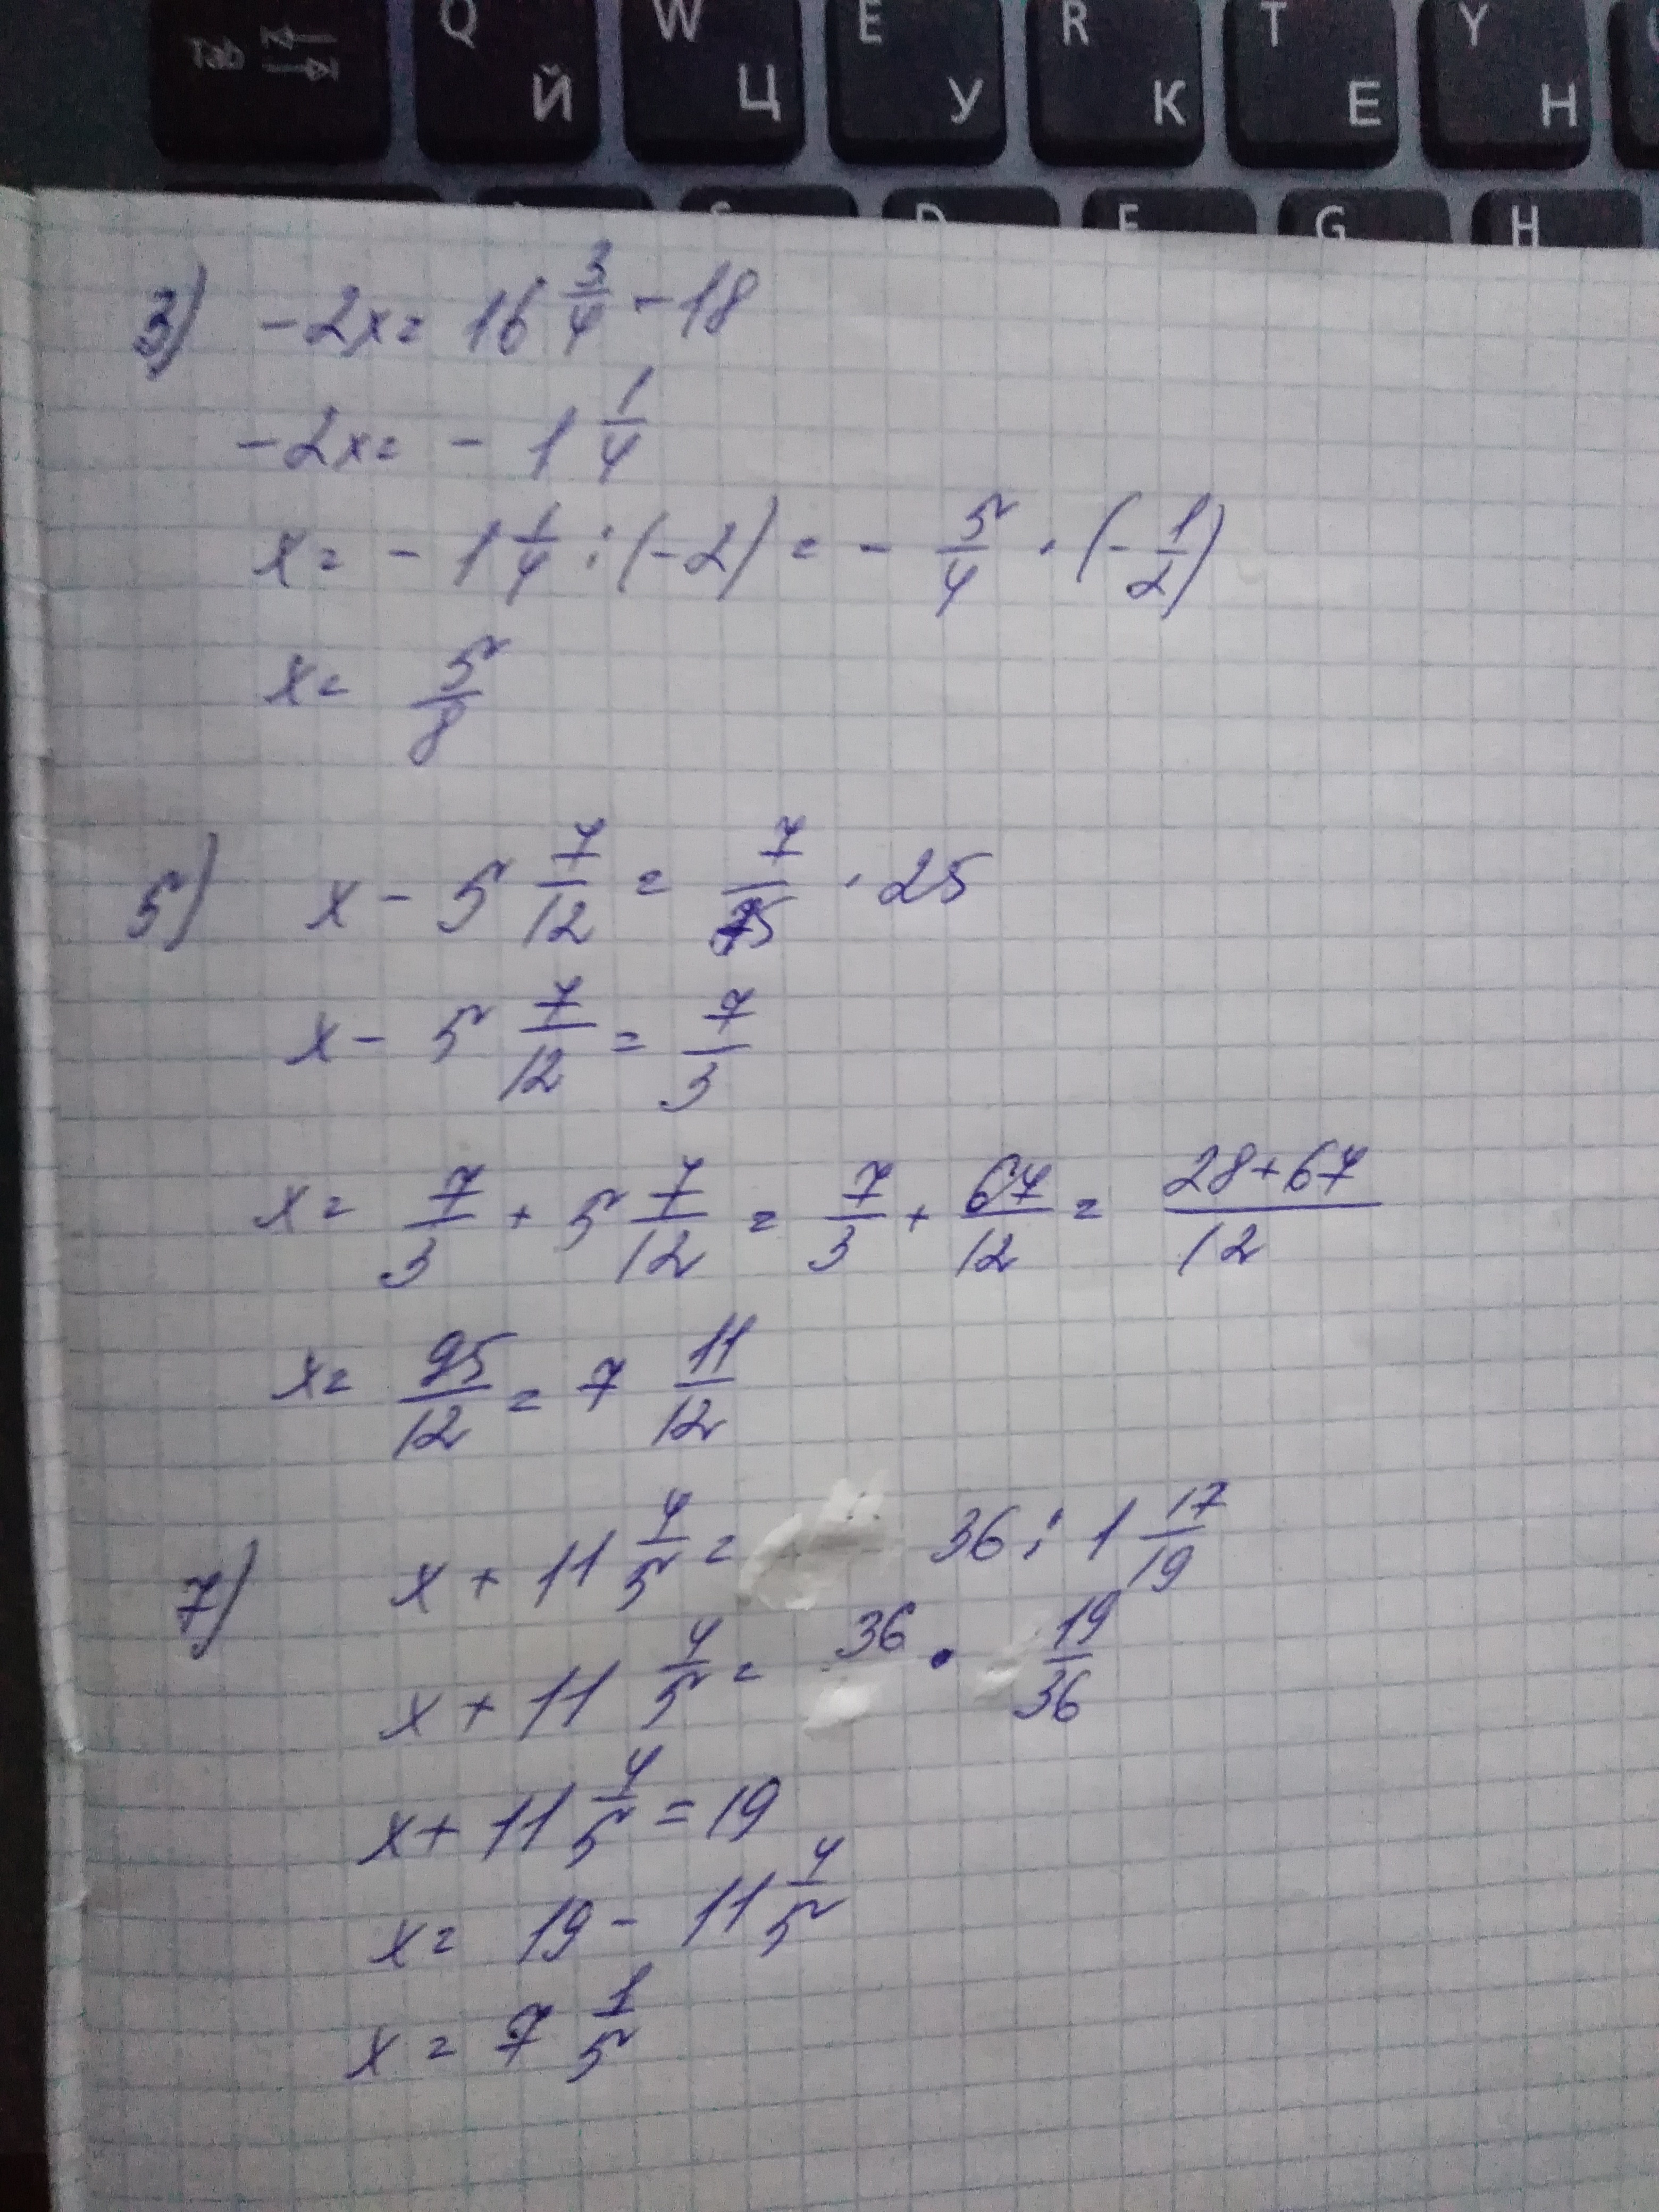 Tab Q W E R T Y
Й Ц У К Е Н
S D F G H
3) -2x = 16 3/4 - 18
-2x = - 1 1/4
x = - 1 1/4 : (-2) = - 5/4 · (- 1/2)
x = 5/8
5) x - 5 7/12 = 7/75 · 25
x - 5 7/12 = 7/3
x = 7/3 + 5 7/12 = 7/3 + 67/12 = 28+67/12
x = 95/12 = 7 11/12
7) x + 11 4/5 = 36 : 1 17/19
x + 11 4/5 = 36 · 19/36
x + 11 4/5 = 19
x = 19 - 11 4/5
x = 7 1/5